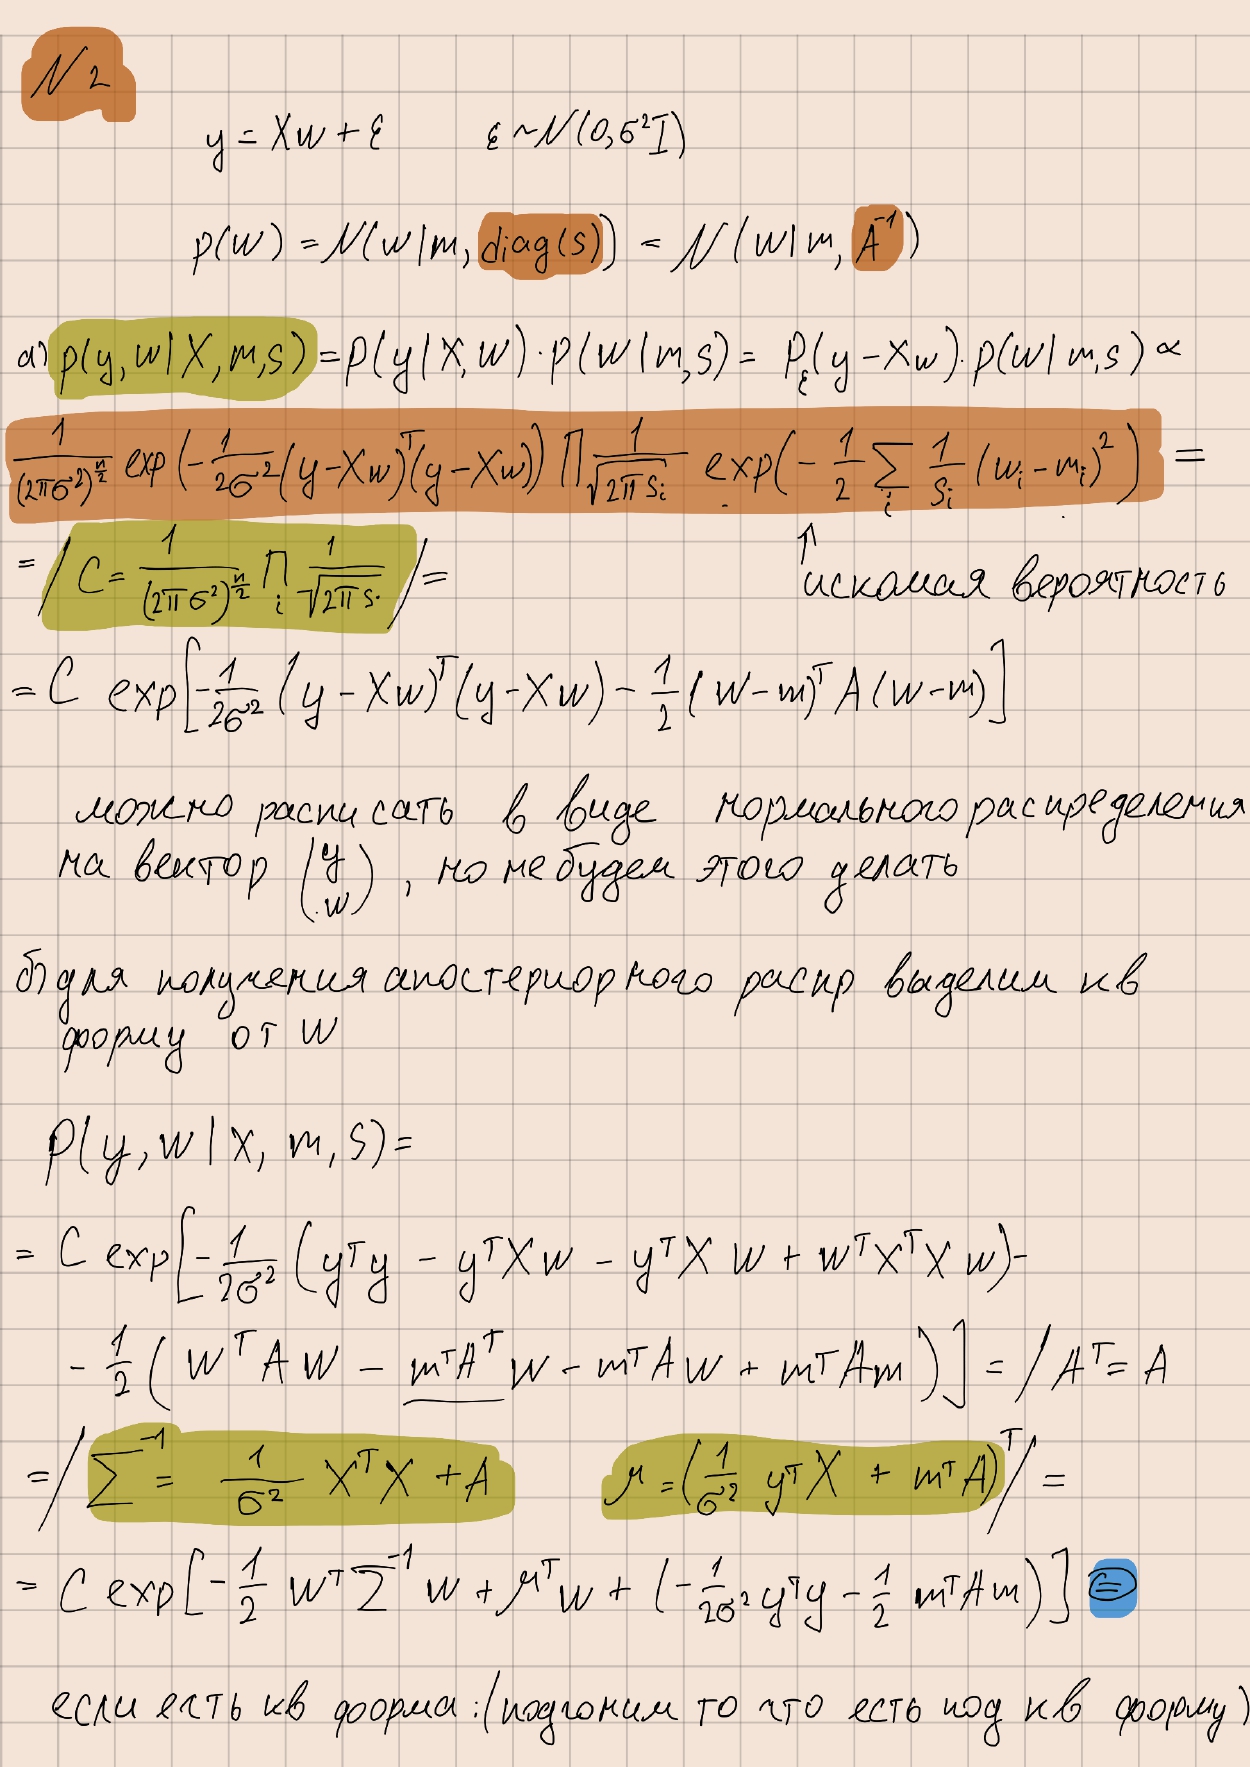 N 2
y = Xw + ε   ε ~ N(0, σ²I)
p(w) = N(w|m, diag(s)) = N(w|m, A⁻¹)
а) p(y, w|X, m, s) = p(y|X, w) · p(w|m, s) = P_ε(y - Xw) · p(w|m, s) ∝
1/(2πσ²)^(n/2) exp(-1/(2σ²) (y-Xw)ᵀ(y-Xw)) ∏ 1/√(2π sᵢ) exp(-1/2 Σᵢ 1/sᵢ (wᵢ - mᵢ)²) =
= / C = 1/(2πσ²)^(n/2) ∏ᵢ 1/√(2π s.) / =
↑ искомая вероятность
= C exp[-1/(2σ²) (y - Xw)ᵀ(y - Xw) - 1/2 (w-m)ᵀ A (w-m)]
можно расписать в виде нормального распределения
на вектор (y w), но не будем этого делать
б) для получения апостериорного распр выделим кв
форму от w
P(y, w|X, m, s) =
= C exp[-1/(2σ²) (yᵀy - yᵀXw - yᵀXw + wᵀXᵀXw) -
- 1/2 (wᵀAw - mᵀAᵀw - mᵀAw + mᵀAm)] = / Aᵀ = A
= / Σ⁻¹ = 1/σ² XᵀX + A   μ = (1/σ² yᵀX + mᵀA)ᵀ / =
= C exp[-1/2 wᵀΣ⁻¹w + μᵀw + (-1/(2σ²) yᵀy - 1/2 mᵀAm)] =
если есть кв форма : (подгоним то что есть под кв форму)